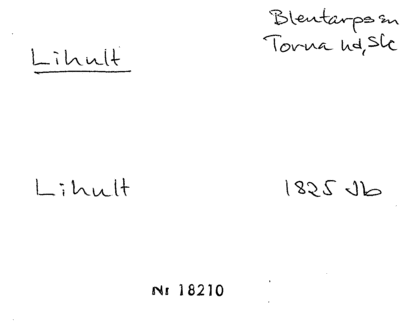 Blentarps sn
Torna hd, Sk
Lihult
Lihult 1825 Jb
Nr 18210